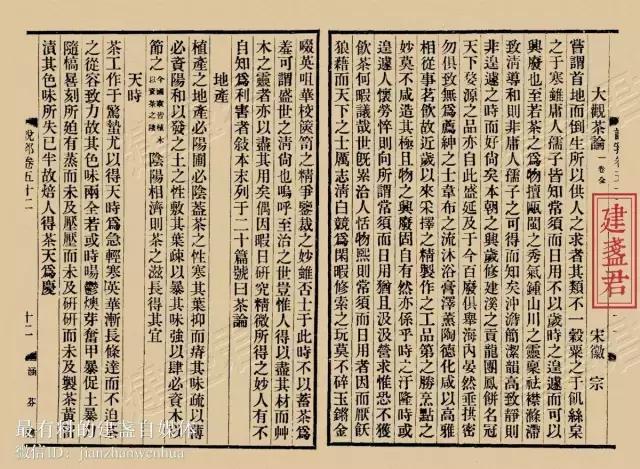 大觀茶論一卷全 宋徽宗
嘗謂首地而倒生所以供人之求者其類不一穀粟之于飢絲枲
之于寒雖庸人孺子皆知常須而日用不以歲時之遑遽而可以
興廢也至若茶之爲物擅甌閩之秀氣鍾山川之靈稟祛襟滌滯
致清導和則非庸人孺子之可得而知矣沖澹簡潔韻高致靜則
非遑遽之時而好尚矣本朝之興歲修建溪之貢龍團鳳餅名冠
天下婺源之品亦自此盛延及于今百廢俱舉海內晏然垂拱密
勿俱致無爲薦紳之士韋布之流沐浴膏澤薰陶德化咸以高雅
相從事茗飲故近歲以來采擇之精製作之工品第之勝烹點之
妙莫不咸造其極且物之興廢固自有然亦係乎時之汙隆時或
遑遽人懷勞悴則向所謂常須而日用猶且汲汲營求惟恐不獲
飲茶何暇議哉世既累洽人恬物熙則常須而日用者因而厭飫
狼藉而天下之士厲志清白競爲閒暇修索之玩莫不碎玉鏘金
建盞君
啜英咀華校篋笥之精爭鑒裁之妙雖否士于此時不以蓄茶爲
羞可謂盛世之清尚也嗚呼至治之世豈惟人得以盡其材而艸
木之靈者亦以盡其用矣偶因暇日研究精微所得之妙人有不
自知爲利害者敘本末列于二十篇號曰茶論
地產
植產之地崖必陽圃必陰蓋茶之性寒其葉抑而瘠其味疏以薄
必資陽和以發之土之性敷其葉疎以暴其味強以肆必資木以
節之今國家皆植木以資茶之陰陰陽相濟則茶之滋長得其宜
天時
茶工作于驚蟄尤以得天時爲急輕寒英華漸長條達而不迫茶工
之從容致力故其色味兩全若或時暘鬱燠芽奮甲暴促工暴力
隨槁晷刻所迫有蒸而未及壓壓而未及研研而未及製茶黃留
漬其色味所失已半故焙人得茶天爲慶
說郛卷五十二
十二
涵芬
最有料的建盞自媒体
微信ID：jianzhanwenhua